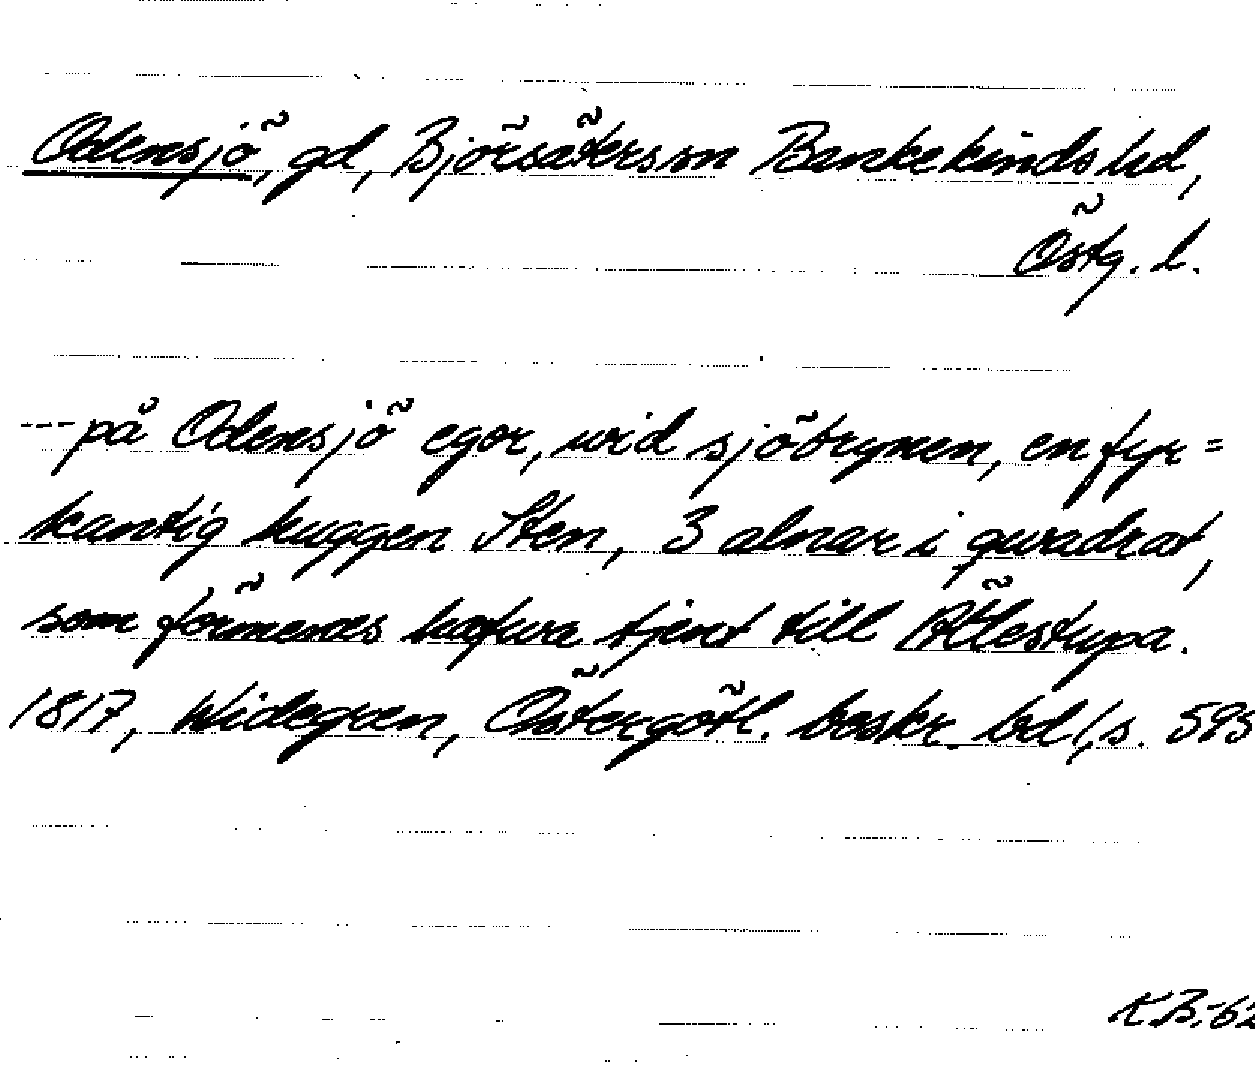 Odensjö, gd, Björsäters sn Bankekinds hd,
Östg. l.
--- på Odensjö egor, wid sjöbrynen, en fyr=
kantig huggen Sten, 3 alnar i quadrat,
som förmenes hafwa tjent till Ätlestupa.
1817, Widegren, Östergötl. beskr. bd 1, s. 595
K.B.-62